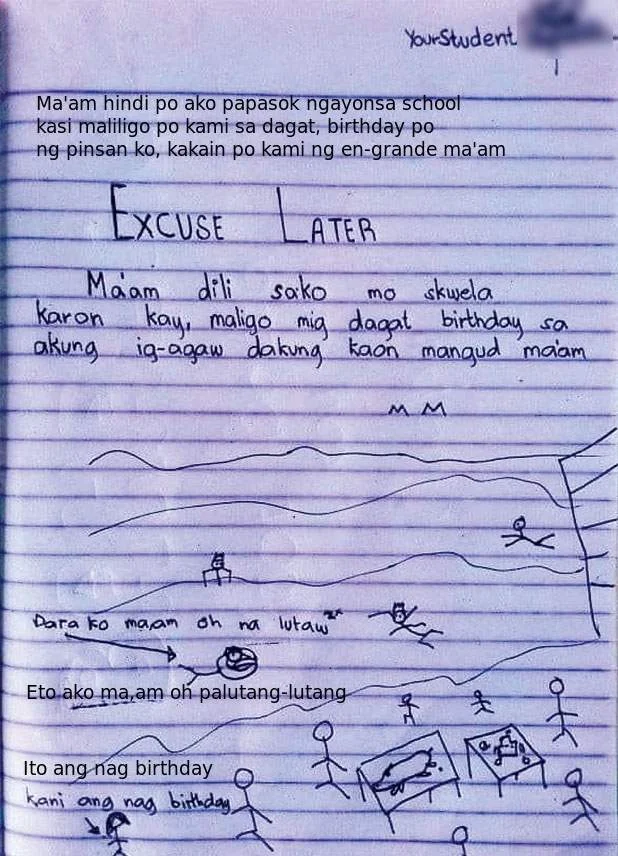 YourStudent
Ma'am hindi po ako papasok ngayonsa school
kasi maliligo po kami sa dagat, birthday po
ng pinsan ko, kakain po kami ng en-grande ma'am
EXCUSE LATER
Ma'am dili sako mo skwela
karon kay, maligo mig dagat birthday sa
akung ig-agaw dakung kaon mangud ma'am
Dara ko ma,am oh na lutaw2x
Eto ako ma,am oh palutang-lutang
Ito ang nag birthday
kani ang nag birthday